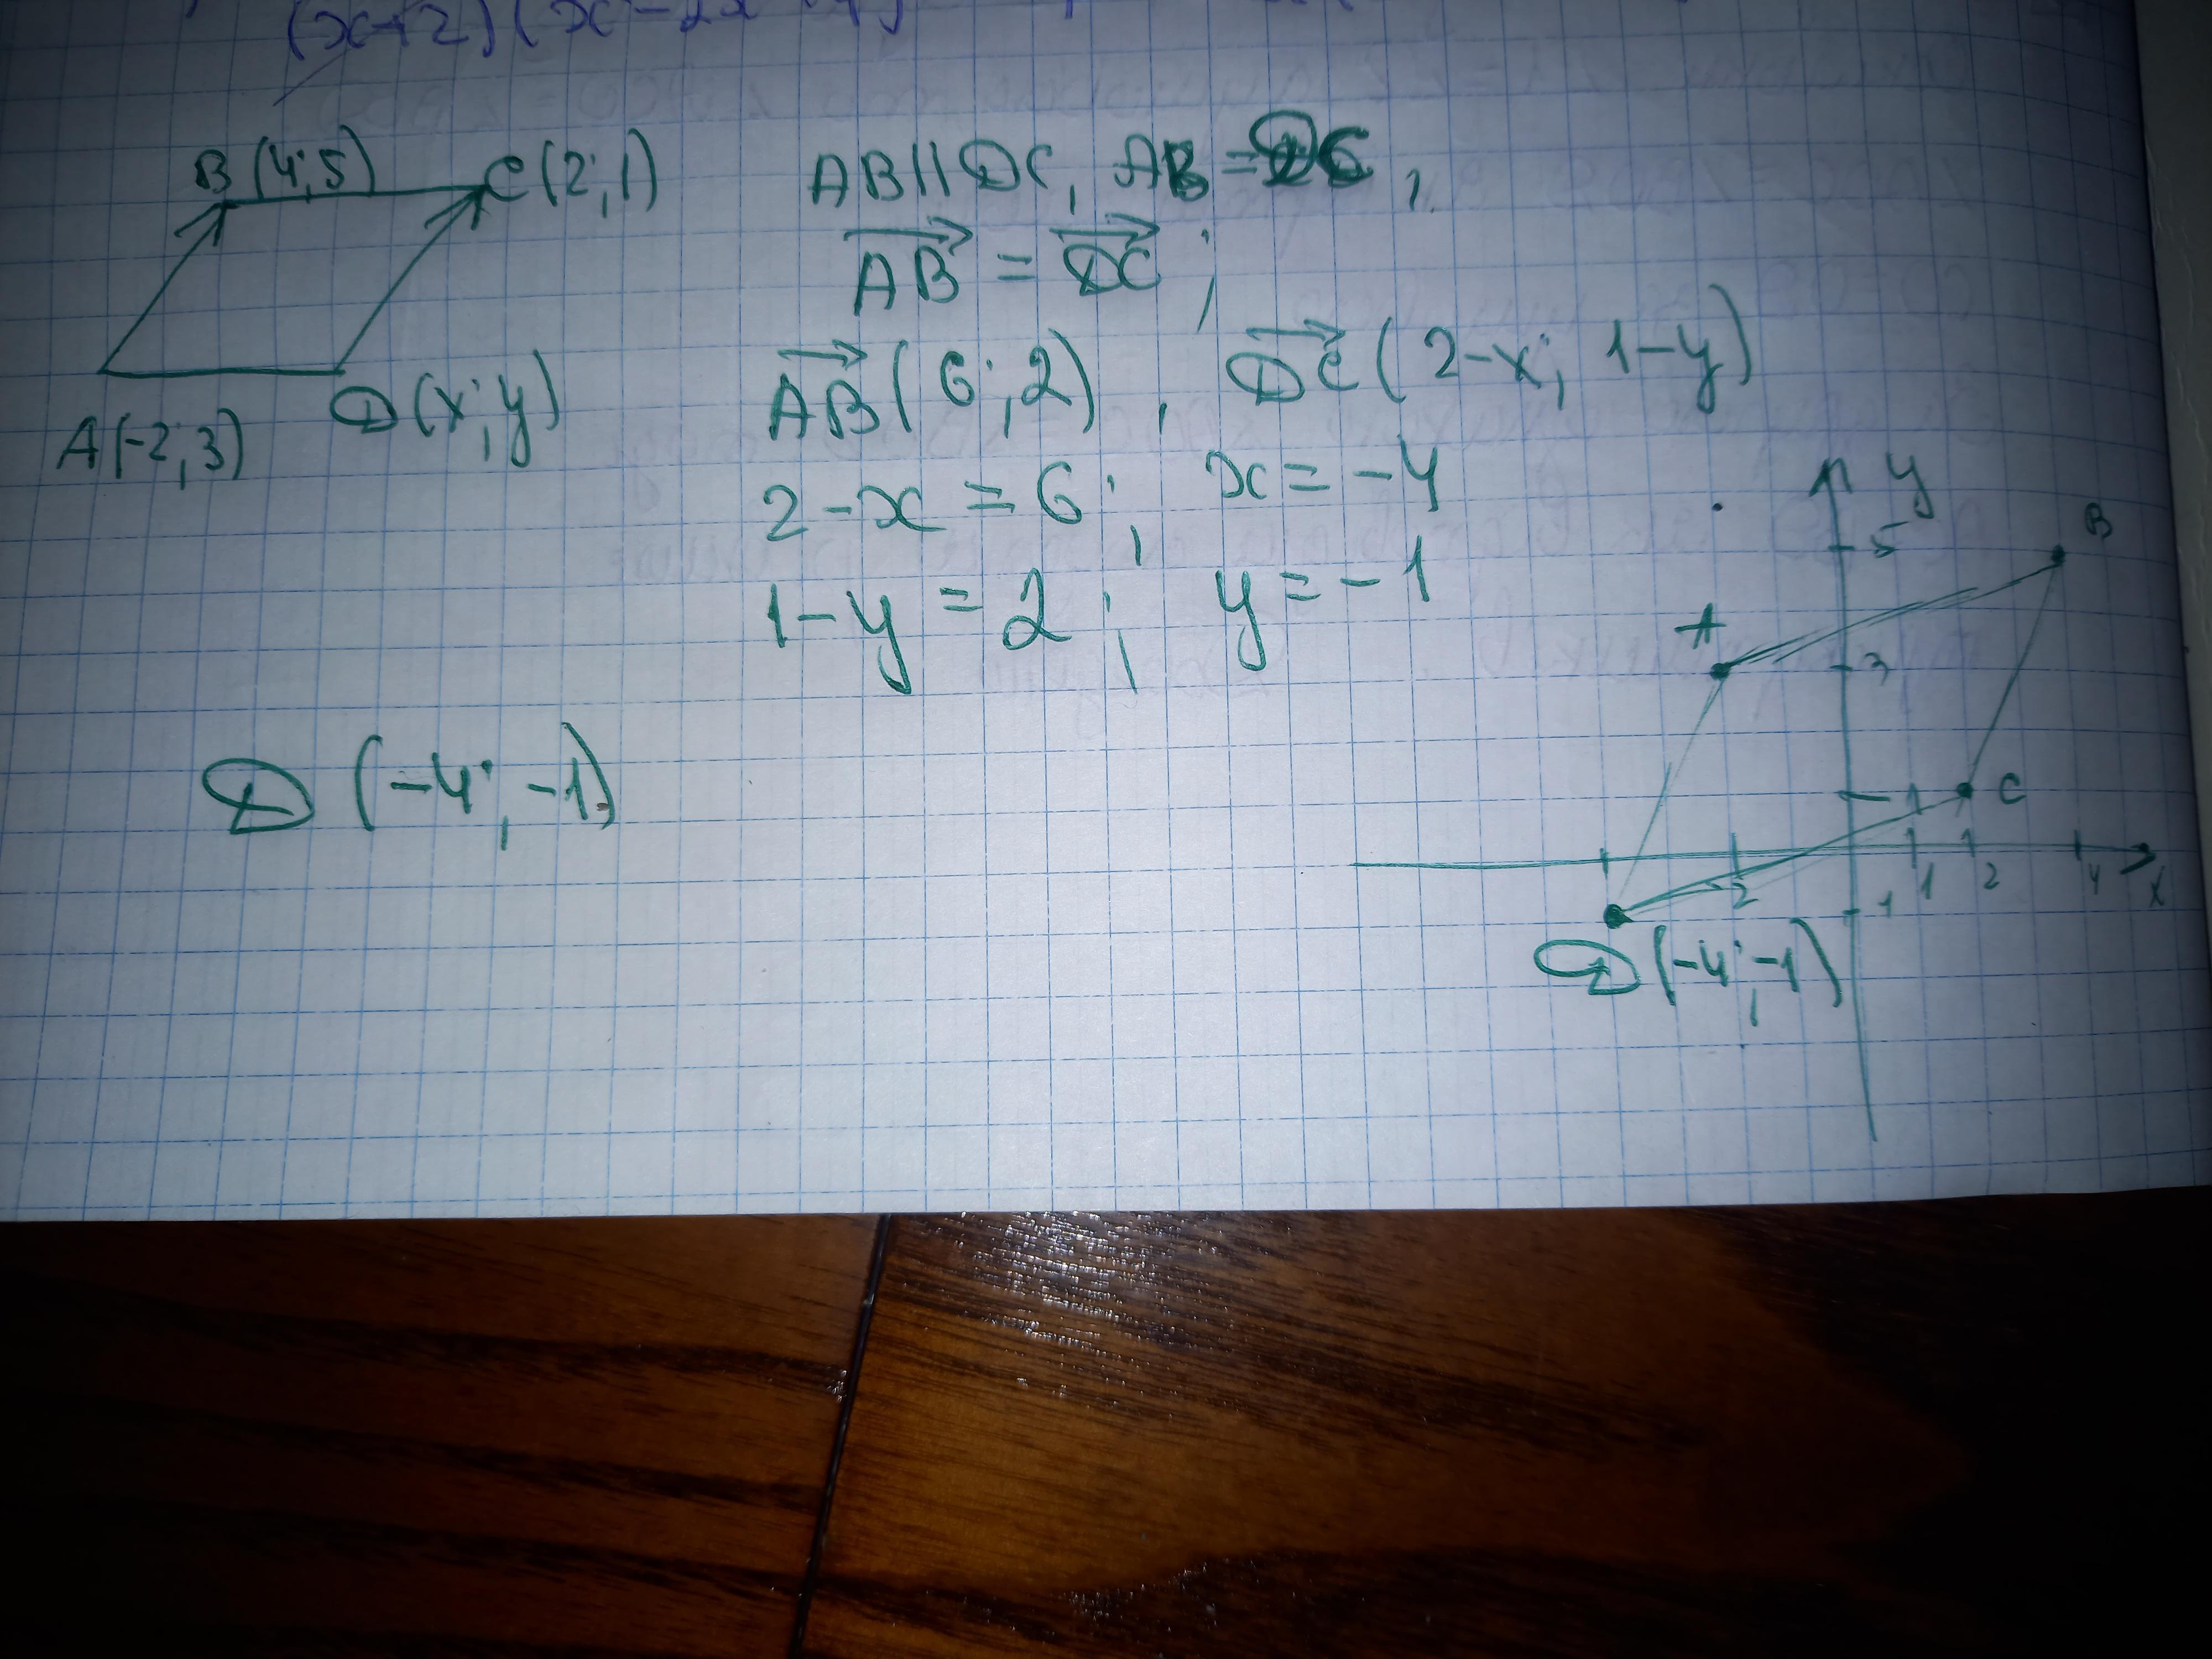 B (4;5)
C (2;1)
A(-2;3)
D(x;y)
AB || DC, AB = DC,
AB = DC;
AB (6;2), DC (2-x; 1-y)
2-x = 6; x = -4
1-y = 2; y = -1
D (-4; -1)
y
5
B
A
3
1
C
2
1
2
4
x
-1
D(-4;-1)